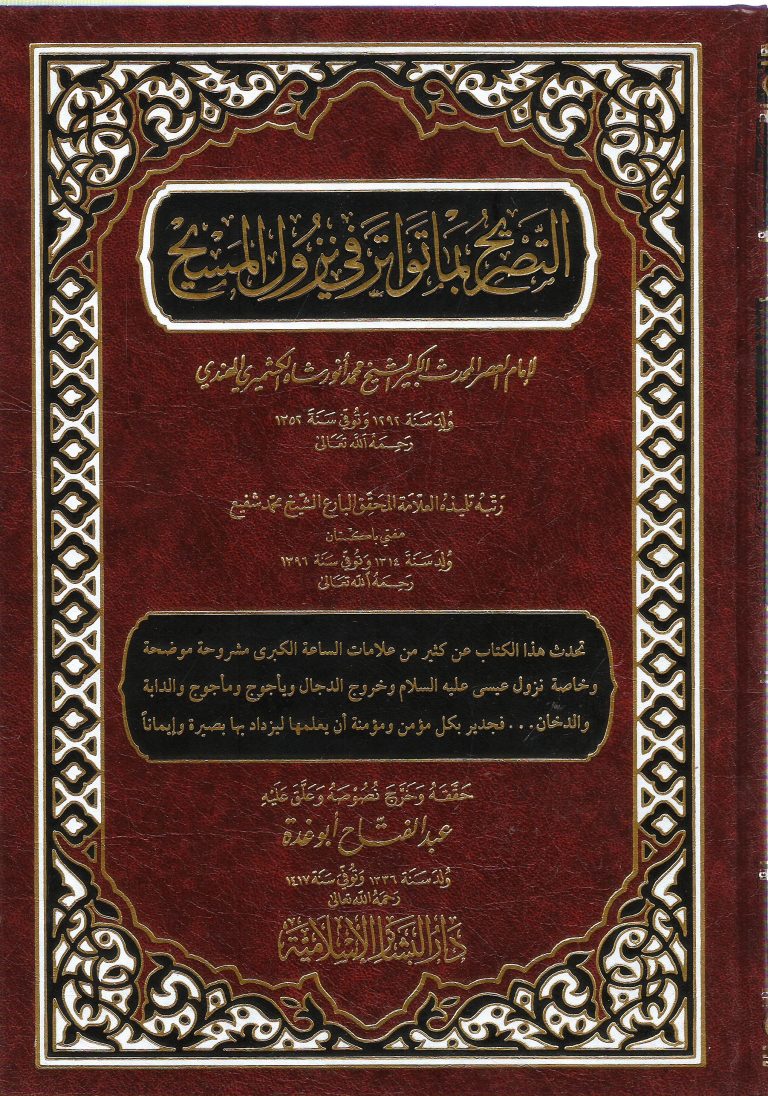 التَّصْرِيحُ بِمَا تَوَاتَرَ فِي نُزُولِ الْمَسِيحِ
لإمام العصر المحدث الكبير الشيخ محمد أنور شاه الكشميري الهندي
وُلِدَ سَنَة ١٢٩٢ وَتُوُفِّيَ سَنَةَ ١٣٥٢
رَحِمَهُ اللهُ تَعَالىٰ
رَتَّبَهُ تلميذه العلّامَة المحقّق البارع الشّيخ محمّد شفيع
مفتي باكستان
وُلِدَ سَنَةَ ١٣١٤ وَتُوُفِّيَ سَنَة ١٣٩٦
رَحِمَهُ اللهُ تَعَالىٰ
تحدث هذا الكتاب عن كثير من علامات الساعة الكبرى مشروحة موضحة
وخاصة نزول عيسى عليه السلام وخروج الدجال ويأجوج ومأجوج والدابة
والدخان . . . فجدير بكل مؤمن ومؤمنة أن يعلمها ليزداد بها بصيرة وإيماناً
حَقَّقَهُ وَخَرَّجَ نُصُوصَهُ وَعَلَّقَ عَلَيْهِ
عبد الفتّاح أبو غدة
وُلِدَ سَنَة ١٣٣٦ وَتُوُفِّيَ سَنَة ١٤١٧
رَحِمَهُ اللهُ تَعَالىٰ
دَارُ البَشَائِر الإِسْلَامِيَّة